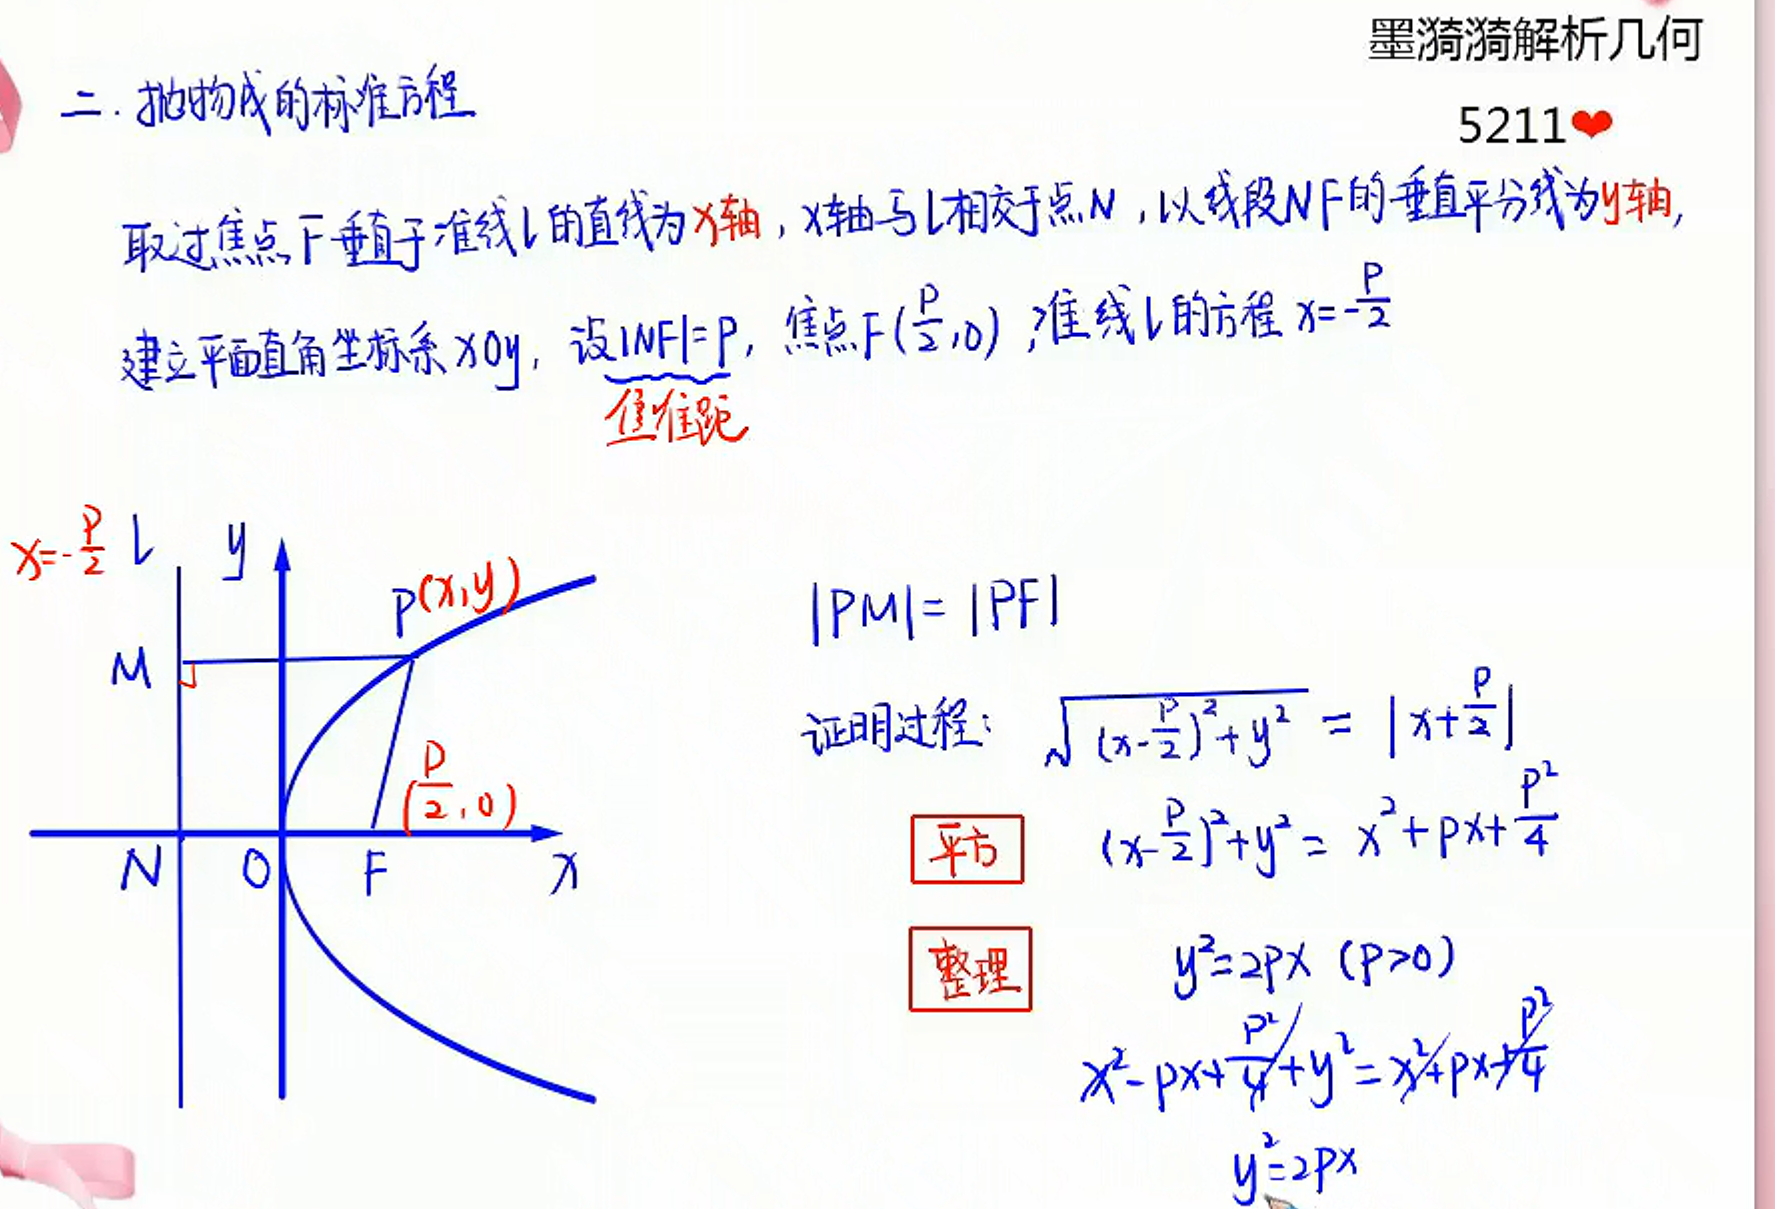 墨漪漪解析几何
5211❤
二. 抛物线的标准方程
取过焦点F垂直于准线l的直线为x轴, x轴与l相交于点N, 以线段NF的垂直平分线为y轴,
建立平面直角坐标系xOy, 设|NF|=p, 焦点F(p/2,0), 准线l的方程 x=-p/2
焦准距
x=-p/2 l y
P(x,y)
M
(p/2,0)
N O F x
|PM|=|PF|
证明过程: √((x-p/2)²+y²) = |x+p/2|
平方 (x-p/2)²+y²= x²+px+p²/4
整理 y²=2px (p>0)
x²-px+p²/4+y²=x²+px+p²/4
y²=2px